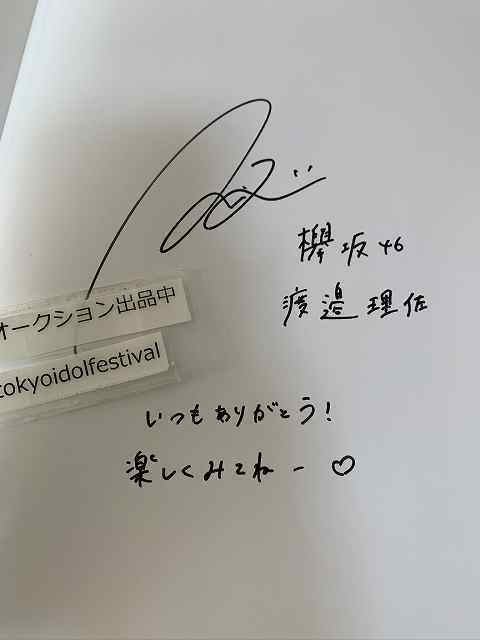 欅坂46
渡邉理佐
オークション出品中
tokyoidolfestival
いつもありがとう!
楽しくみてねー♡